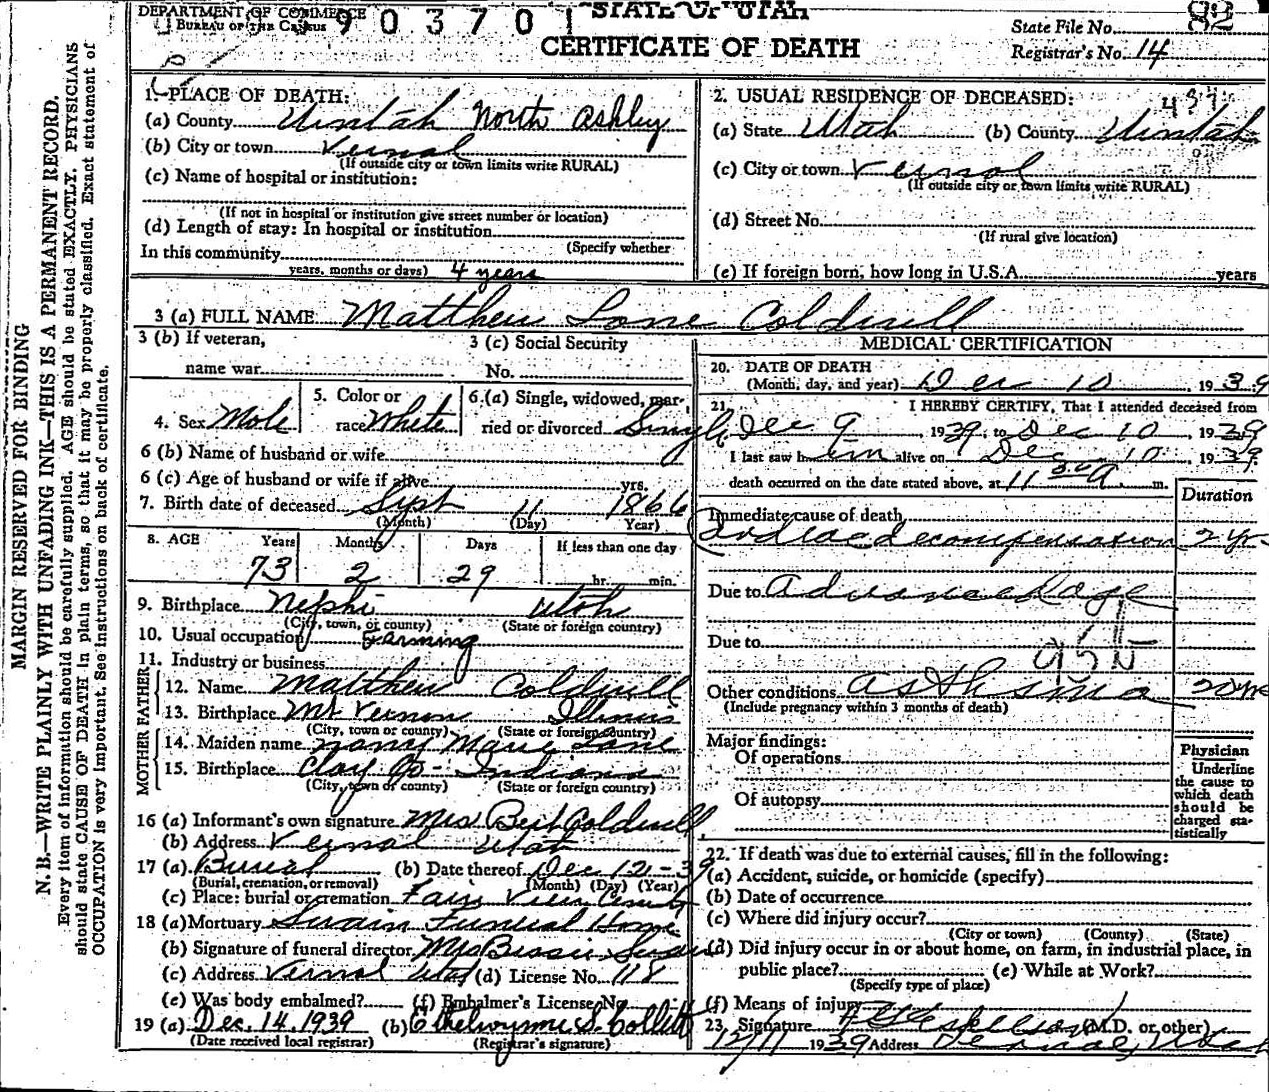 DEPARTMENT OF COMMERCE
BUREAU OF THE CENSUS
903701
STATE OF UTAH
CERTIFICATE OF DEATH
State File No. 82
Registrar's No. 14
MARGIN RESERVED FOR BINDING
N. B.—WRITE PLAINLY WITH UNFADING INK—THIS IS A PERMANENT RECORD.
Every item of information should be carefully supplied. AGE should be stated EXACTLY. PHYSICIANS
should state CAUSE OF DEATH in plain terms, so that it may be properly classified. Exact statement of
OCCUPATION is very important. See instructions on back of certificate.
1. PLACE OF DEATH:
(a) County Uintah North Ashley
(b) City or town Vernal
(If outside city or town limits write RURAL)
(c) Name of hospital or institution:
(If not in hospital or institution give street number or location)
(d) Length of stay: In hospital or institution
(Specify whether
In this community
years, months or days) 4 years
2. USUAL RESIDENCE OF DECEASED:
(a) State Utah (b) County Uintah
(c) City or town Vernal
(If outside city or town limits write RURAL)
(d) Street No.
(If rural give location)
(e) If foreign born, how long in U.S.A. years
3 (a) FULL NAME Matthew Lane Coldwell
3 (b) If veteran,
name war
3 (c) Social Security
No.
4. Sex Male
5. Color or
race White
6.(a) Single, widowed, mar-
ried or divorced Single
6 (b) Name of husband or wife
6 (c) Age of husband or wife if alive yrs.
7. Birth date of deceased Sept 11 1866
(Month) (Day) Year)
8. AGE Years Months Days If less than one day
73 2 29 hr. min.
9. Birthplace Nephi Utah
(City, town, or county) (State or foreign country)
10. Usual occupation Farming
11. Industry or business
FATHER
12. Name Matthew Coldwell
13. Birthplace Mt Vernon Illinois
(City, town or county) (State or foreign country)
MOTHER
14. Maiden name Nancy Marie Lane
15. Birthplace Clay Co- Indiana
(City, town or county) (State or foreign country)
16 (a) Informant's own signature Mrs Bert Coldwell
(b) Address Vernal Utah
17 (a) Burial (b) Date thereof Dec 12-39
(Burial, cremation, or removal) (Month) (Day) (Year)
(c) Place: burial or cremation Fair View
18 (a) Mortuary Swain Funeral Home
(b) Signature of funeral director Mrs Bessie Swain
(c) Address Vernal Utah (d) License No. 118
(e) Was body embalmed? (f) Embalmer's License No.
19 (a) Dec. 14. 1939 (b) Ethelwynne S. Collett
(Date received local registrar) (Registrar's signature)
MEDICAL CERTIFICATION
20. DATE OF DEATH
(Month, day, and year) Dec 10, 1939
21. I HEREBY CERTIFY, That I attended deceased from
Dec 9 1939, to Dec 10 1939
I last saw him alive on Dec 10 1939
death occurred on the date stated above, at 11 30 a. m.
Duration
Immediate cause of death
Cardiac decompensation 2 yrs
Due to Advanced age
Due to
95
Other conditions asthma
(Include pregnancy within 3 months of death)
Major findings:
Of operations
Of autopsy
Physician
Underline
the cause to
which death
should be
charged sta-
tistically
22. If death was due to external causes, fill in the following:
(a) Accident, suicide, or homicide (specify)
(b) Date of occurrence
(c) Where did injury occur?
(City or town) (County) (State)
(d) Did injury occur in or about home, on farm, in industrial place, in
public place? (e) While at Work?
(Specify type of place)
(f) Means of injury
23. Signature (M.D. or other)
12/11 1939 Address Vernal, Utah